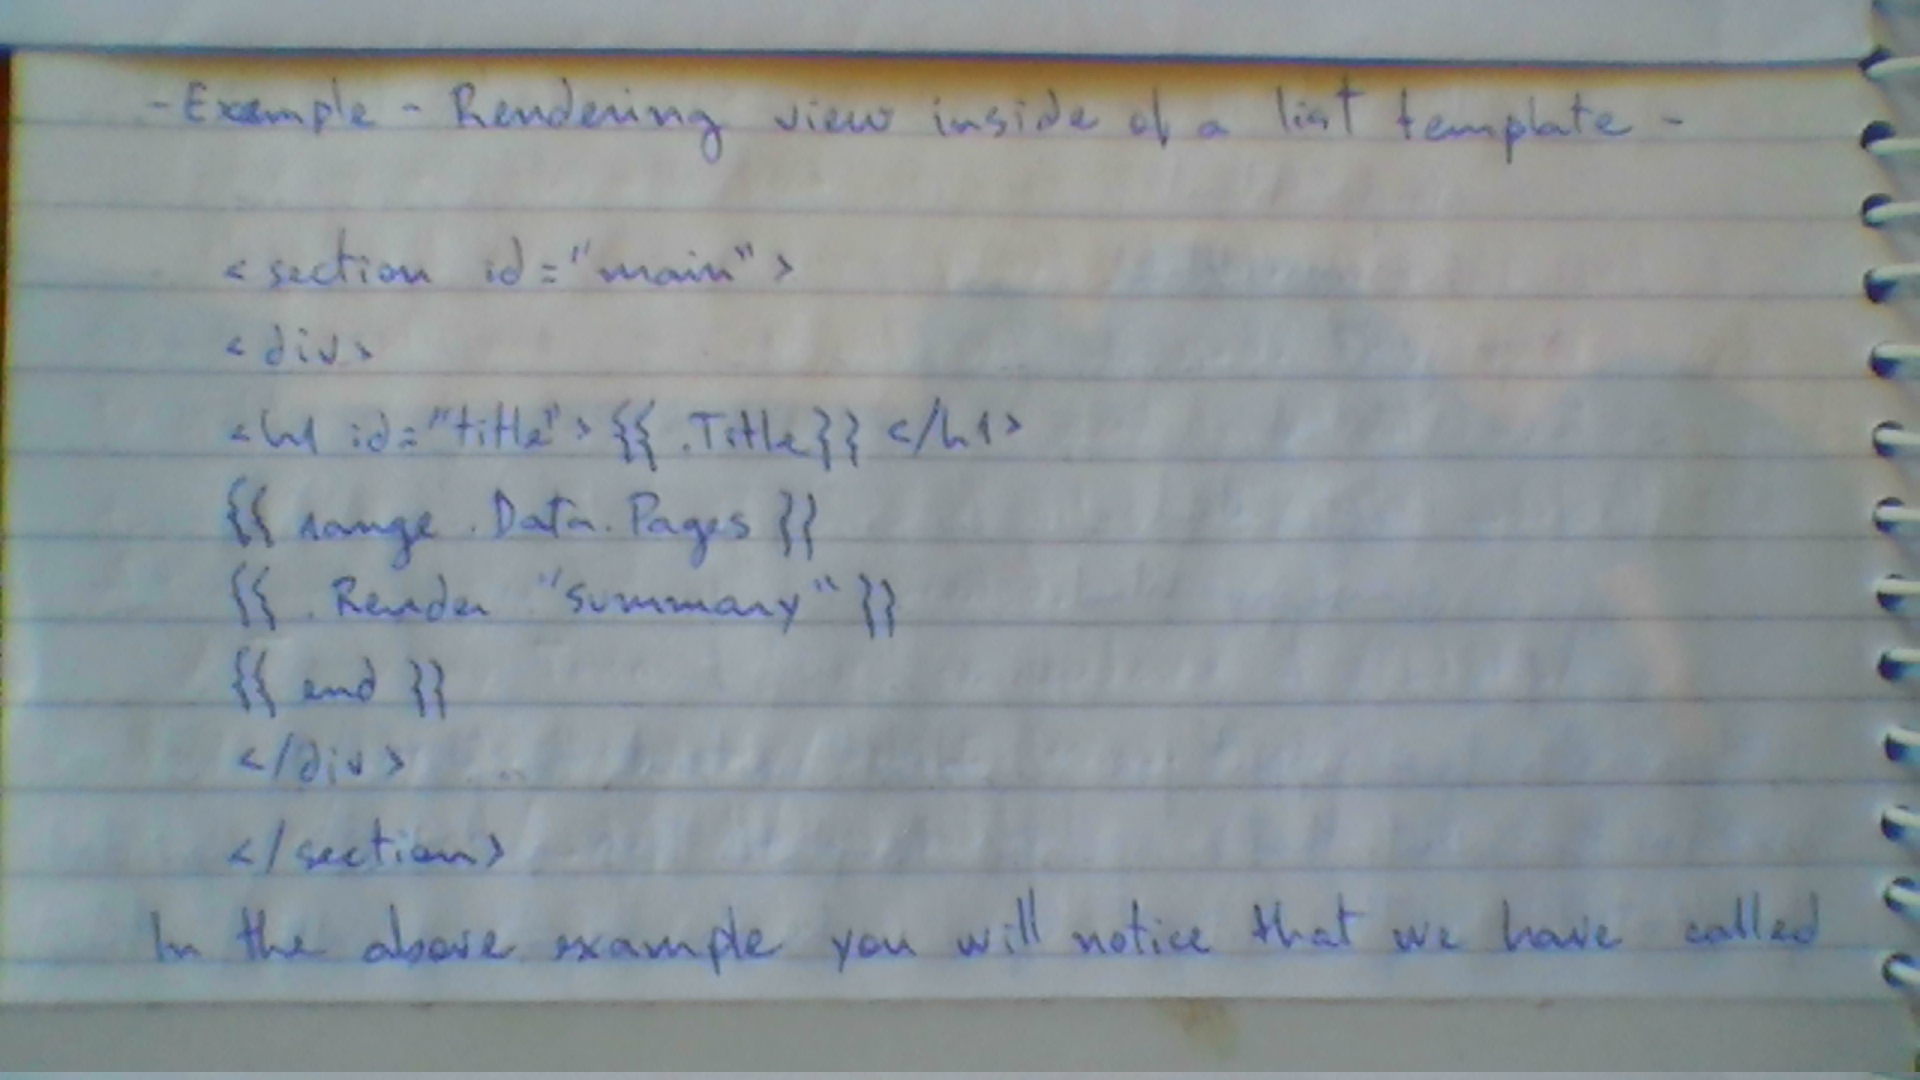 - Example - Rendering view inside of a list template -
<section id="main">
<div>
<h1 id="title">{{ .Title}} </h1>
{{ range .Data.Pages }}
{{ .Render "summary" }}
{{ end }}
</div>
</section>
In the above example you will notice that we have called